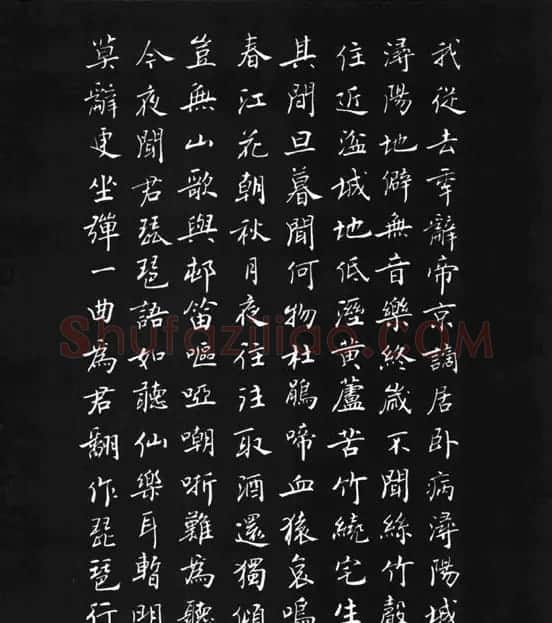 我從去年辭帝京謫居臥病潯陽城
潯陽地僻無音樂終歲不聞絲竹聲
住近湓城地低溼黃蘆苦竹繞宅生
其間旦暮聞何物杜鵑啼血猿哀鳴
春江花朝秋月夜往往取酒還獨傾
豈無山歌與邨笛嘔啞嘲哳難為聽
今夜聞君琵琶語如聽仙樂耳暫明
莫辭更坐彈一曲為君翻作琵琶行
Shufaziliao.com